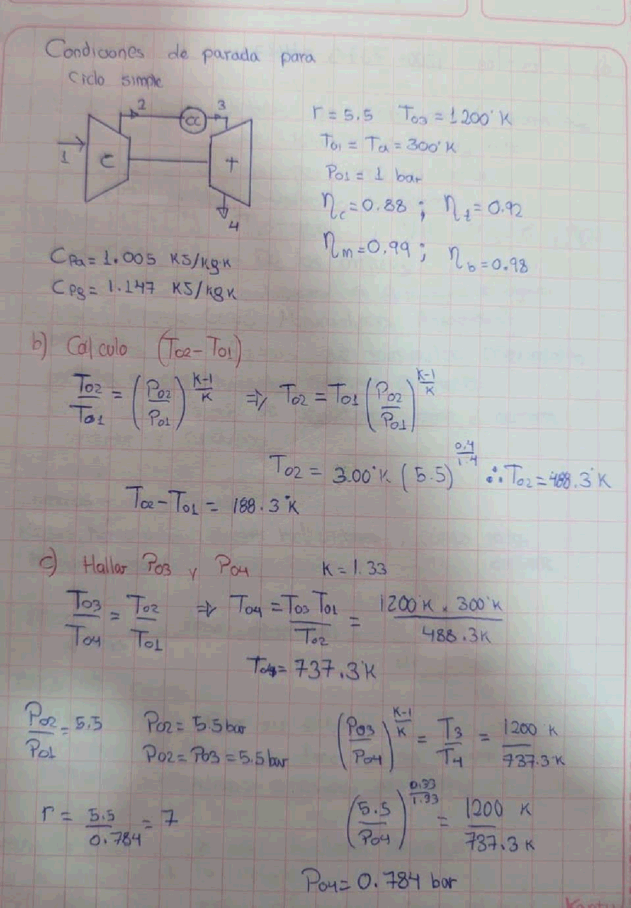 Condiciones de parada para
ciclo simple
1 C 2 cc 3 T 4
r = 5.5 T03 = 1200°K
T01 = Ta = 300°K
P01 = 1 bar
ηc = 0.88 ; ηt = 0.92
ηm = 0.99 ; ηb = 0.98
CPa = 1.005 KS/kgK
CPg = 1.147 KS/kgK
b) Calculo (T02 - T01)
T02/T01 = (P02/P01)^(K-1/K) ⇒ T02 = T01 (P02/P01)^(K-1/K)
T02 = 300°K (5.5)^(0.4/1.4) ∴ T02 = 488.3°K
T02 - T01 = 188.3°K
c) Hallar P03 y P04 K = 1.33
T03/T04 = T02/T01 ⇒ T04 = T03 T01/T02 = 1200°K × 300°K/488.3K
T04 = 737.3°K
P02/P01 = 5.5 P02 = 5.5 bar (P03/P04)^(K-1/K) = T3/T4 = 1200 K/737.3K
P02 = P03 = 5.5 bar
r = 5.5/0.784 = 7 (5.5/P04)^(0.33/1.33) = 1200 K/737.3 K
P04 = 0.784 bar